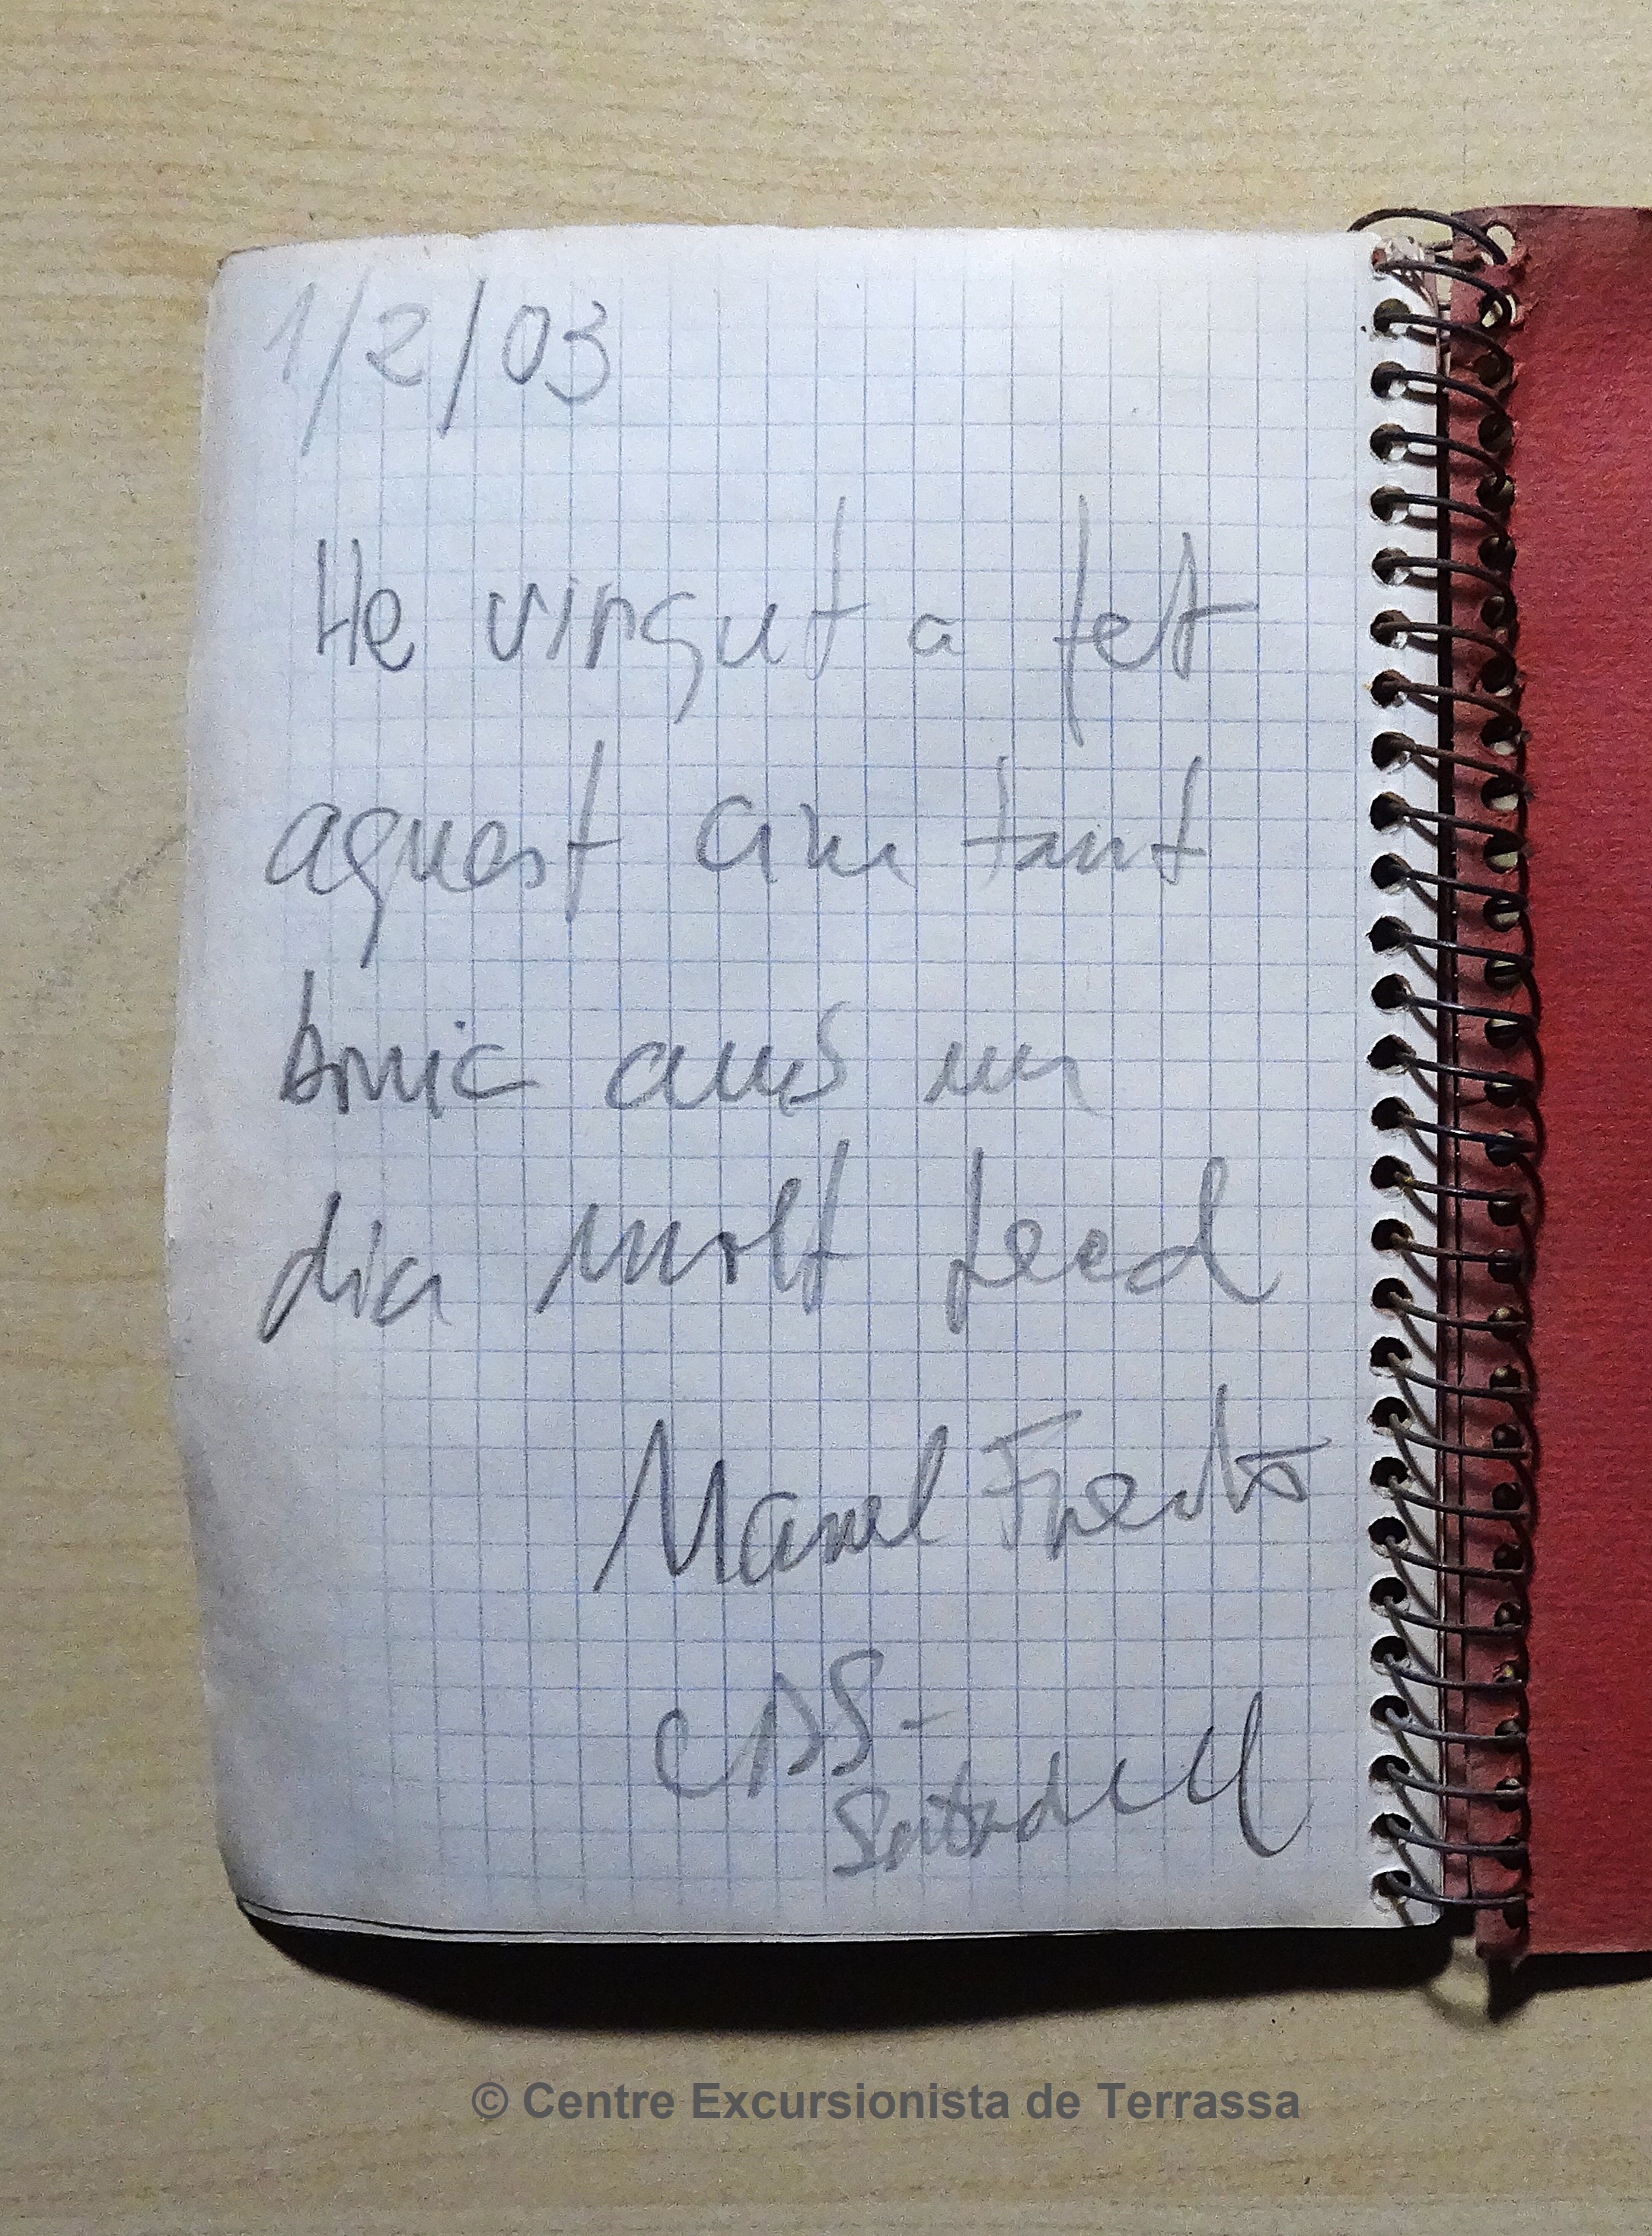 1/2/03
He vingut a fet
aquest cim tant
bonic amb un
dia molt
Manel
Sabadell
© Centre Excursionista de Terrassa